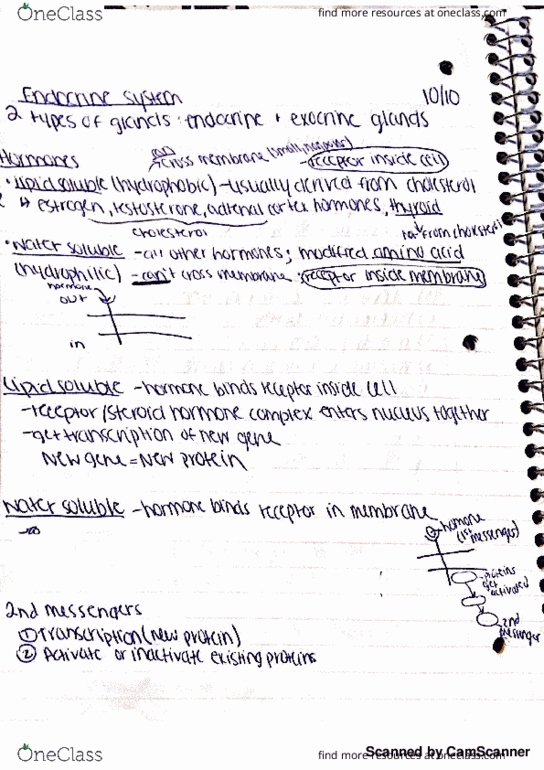 OneClass
find more resources at oneclass.com
Endocrine system 10/10
2 types of glands: endocrine + exocrine glands
can
Hormones cross membrane (small, nonpolar) - receptor inside cell
• Lipid soluble (hydrophobic) - usually derived from cholesterol
↳ estrogen, testosterone, adrenal cortex hormones, thyroid
cholesterol not from cholesterol
• Water soluble - all other hormones; modified amino acid
(hydrophilic) - can't cross membrane receptor inside membrane
hormone
out
in
Lipid soluble - hormone binds receptor inside cell
- receptor/steroid hormone complex enters nucleus together
- get transcription of new gene
New gene = New protein
Water soluble - hormone binds receptor in membrane
hormone
(1st messenger)
proteins
get
activated
2nd
messenger
2nd messengers
① Transcription (new protein)
② Activate or inactivate existing proteins
OneClass
find more resources at oneclass.com
Scanned by CamScanner